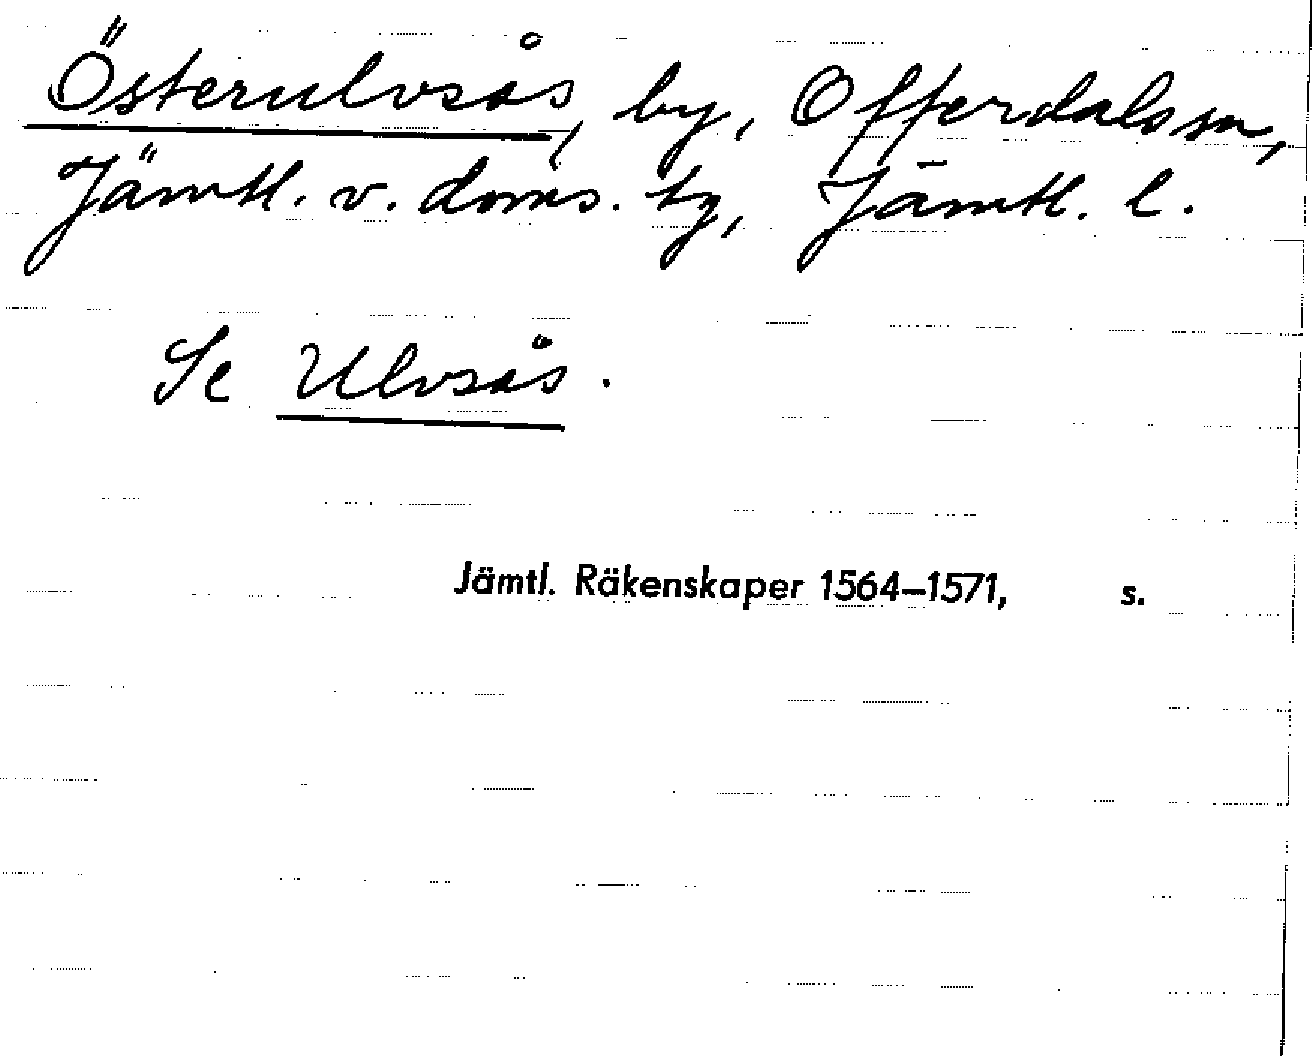 Österulvsås, by, Offerdals sn,
Jämtl. v. doms. tg, Jämtl. l.
Se Ulvsås.
Jämtl. Räkenskaper 1564–1571, s.